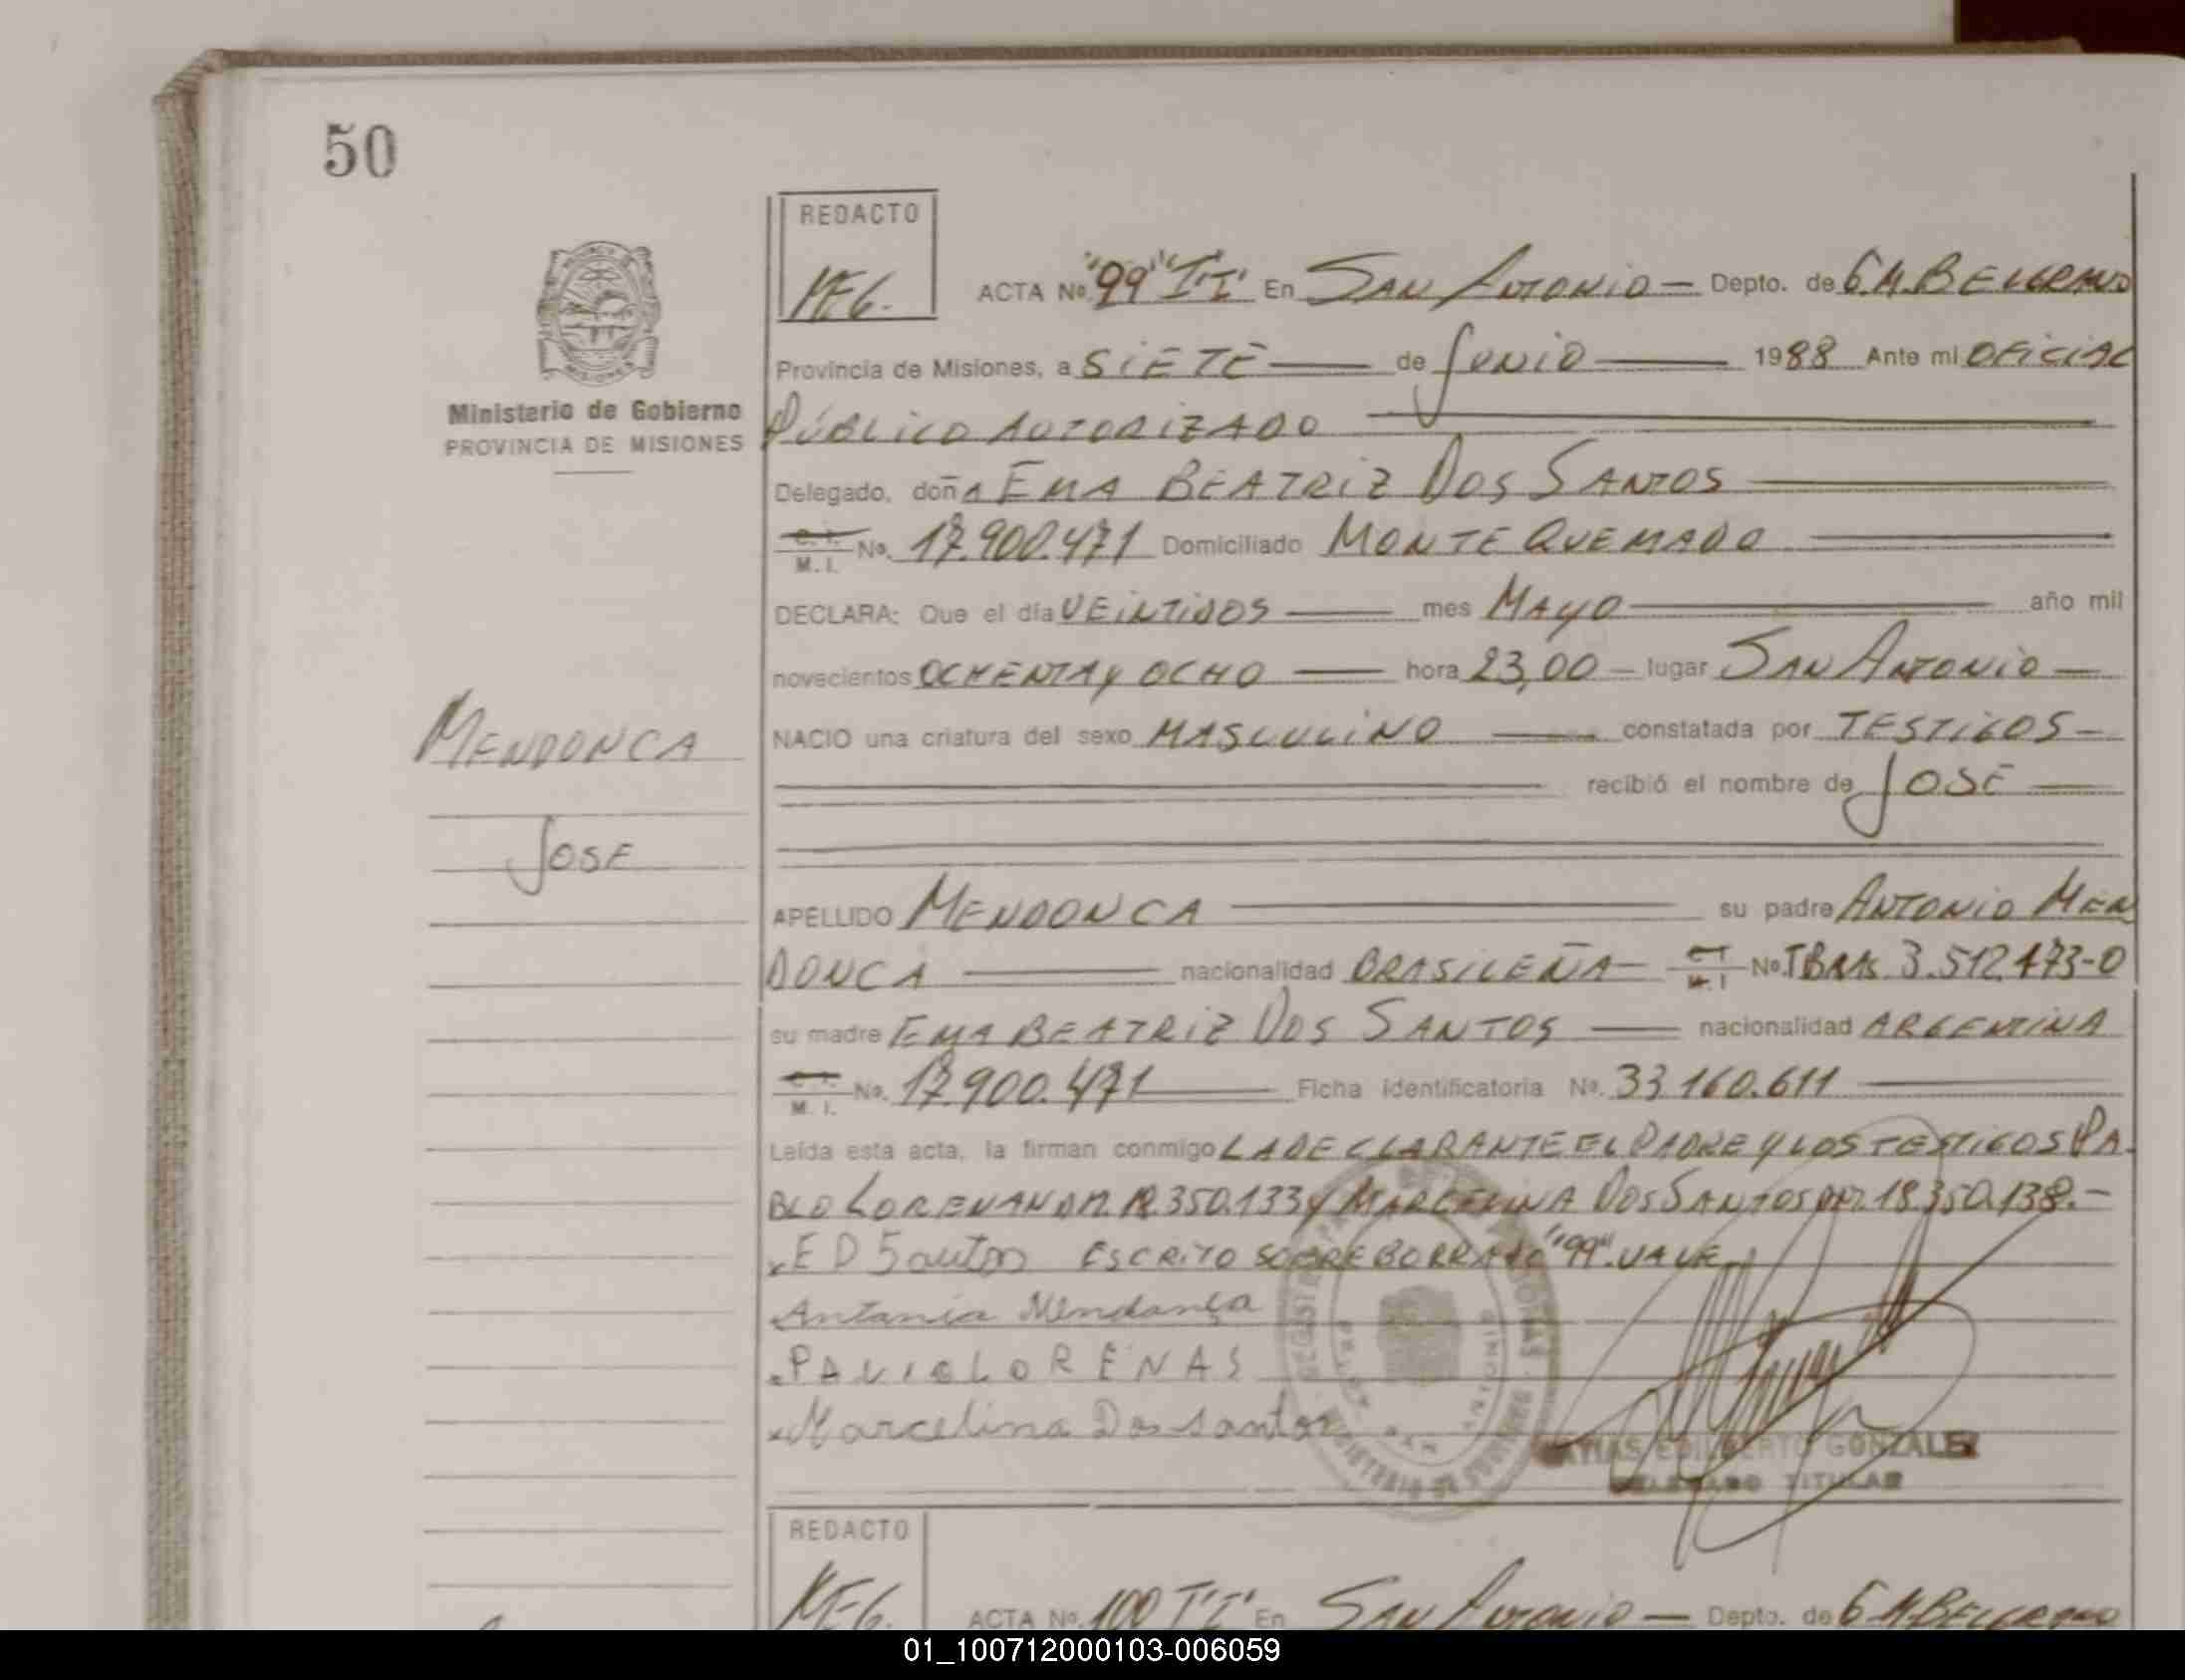 50
REDACTO
ACTA No. "99" "I" En SAN ANTONIO — Depto. de G.M. BELGRANO
Provincia de Misiones, a SIETE — de JUNIO — 1988 Ante mi OFICIAL
Ministerio de Gobierno
PROVINCIA DE MISIONES
PÚBLICO AUTORIZADO
Delegado, doña EMA BEATRIZ DOS SANTOS
C. I. M. I. No. 17.900.471 Domiciliado MONTE QUEMADO
DECLARA: Que el día VEINTIDOS — mes MAYO — año mil
novecientos OCHENTA y OCHO — hora 23,00 — lugar SAN ANTONIO —
MENDONCA
NACIO una criatura del sexo MASCULINO — constatada por TESTIGOS —
recibió el nombre de JOSÉ —
JOSE
APELLIDO MENDONCA — su padre ANTONIO MEN
DONCA — nacionalidad BRASILEÑA — C.I. M.I No. T BRAS 3.512.473-0
su madre EMA BEATRIZ DOS SANTOS — nacionalidad ARGENTINA
C. I. M. I. No. 17.900.471 — Ficha identificatoria No. 33.160.611 —
Leída esta acta, la firman conmigo LA DECLARANTE EL PADRE Y LOS TESTIGOS PA-
BLO LORENA 350.133 y MARCELINA DOS SANTOS 18.350.138.-
E D Santos ESCRITO SOBRE BORRADO "99" VALE
Antonio Mendonça
LORENAS
Marcelina Dos santos
MATIAS EDILBERTO GONZALEZ
DELEGADO TITULAR
REDACTO
ACTA No. 100 "I" En SAN ANTONIO — Depto. de G.M. BELGRANO
01_100712000103-006059